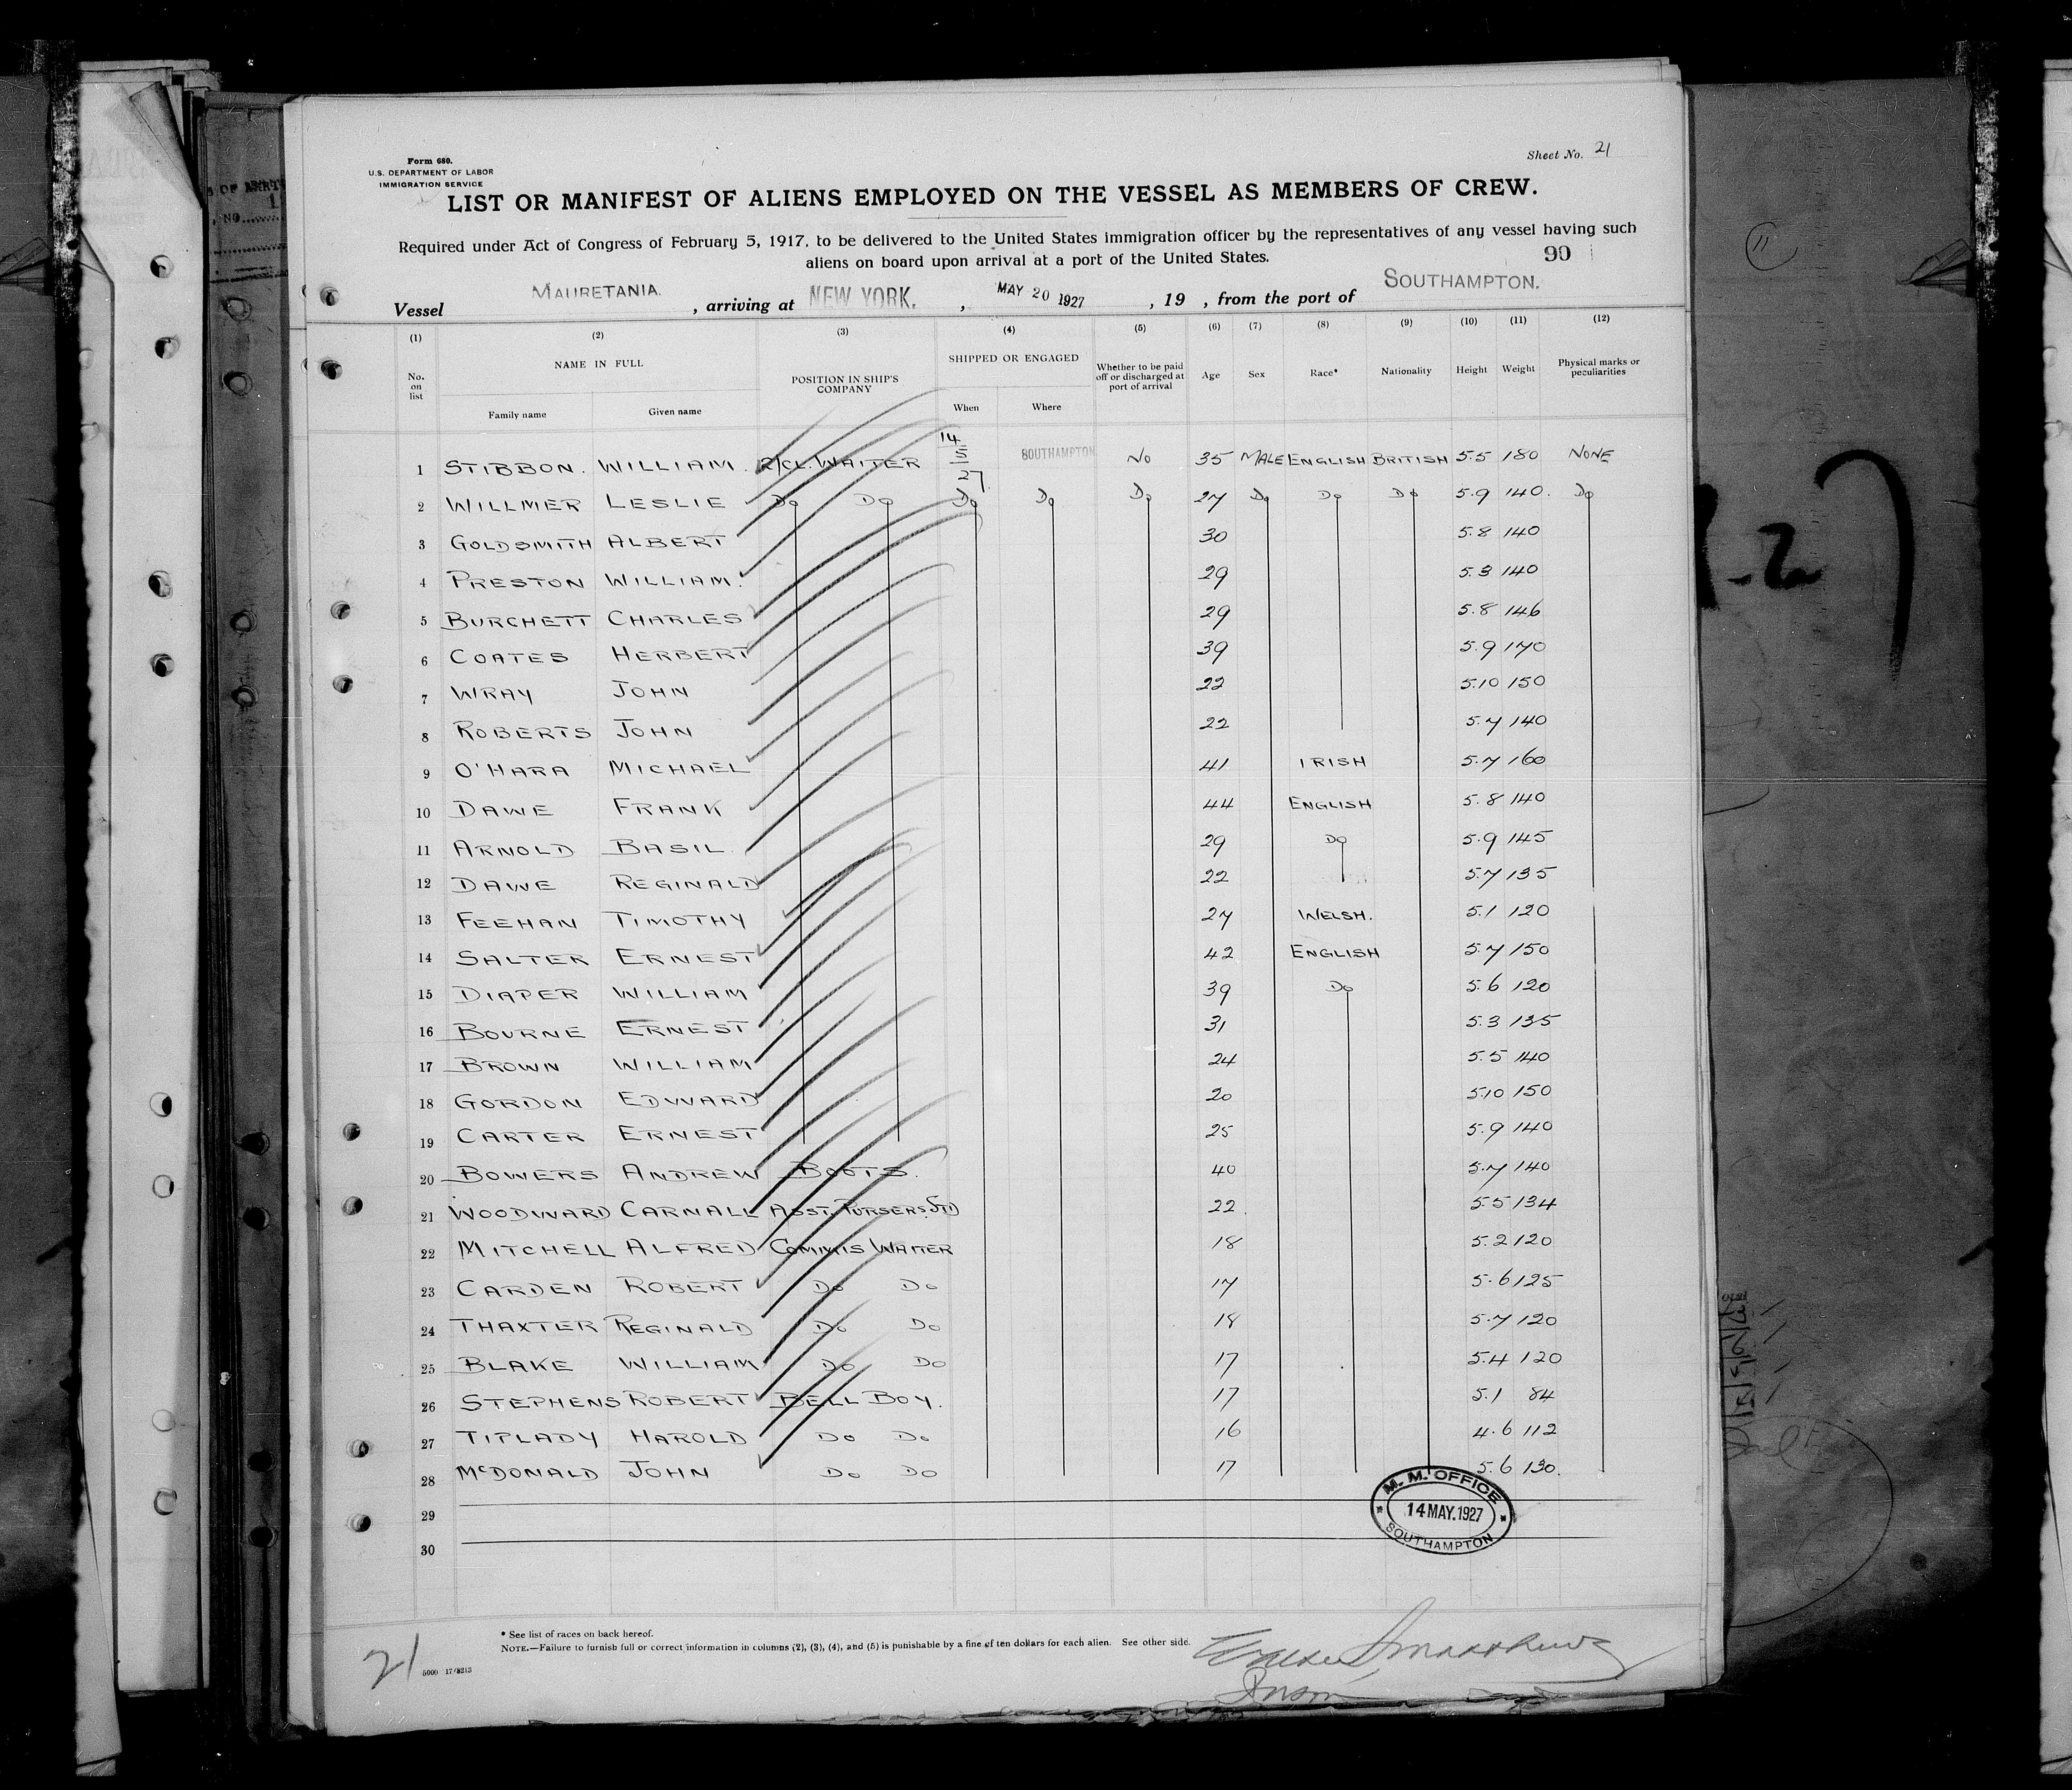 Form 680.
U.S. DEPARTMENT OF LABOR
IMMIGRATION SERVICE
Sheet No. 21
LIST OR MANIFEST OF ALIENS EMPLOYED ON THE VESSEL AS MEMBERS OF CREW.
Required under Act of Congress of February 5, 1917, to be delivered to the United States immigration officer by the representatives of any vessel having such
aliens on board upon arrival at a port of the United States.
90
Vessel MAURETANIA. , arriving at NEW YORK. , MAY 20 1927 , 19 , from the port of SOUTHAMPTON.
(1) (2) (3) (4) (5) (6) (7) (8) (9) (10) (11) (12)
No. on list NAME IN FULL POSITION IN SHIP'S COMPANY SHIPPED OR ENGAGED Whether to be paid off or discharged at port of arrival Age Sex Race* Nationality Height Weight Physical marks or peculiarities
Family name Given name When Where
1 STIBBON. WILLIAM. R/CL. WAITER 14/5/27. SOUTHAMPTON NO 35 MALE ENGLISH BRITISH 5.5 180 NONE
2 WILLMER LESLIE DO DO DO DO DO 27 DO DO DO 5.9 140. DO
3 GOLDSMITH ALBERT 30 5.8 140
4 PRESTON WILLIAM. 29 5.3 140
5 BURCHETT CHARLES 29 5.8 146
6 COATES HERBERT 39 5.9 170
7 WRAY JOHN 22 5.10 150
8 ROBERTS JOHN 22 5.7 140
9 O'HARA MICHAEL 41 IRISH 5.7 160
10 DAWE FRANK 44 ENGLISH 5.8 140
11 ARNOLD BASIL 29 DO 5.9 145
12 DAWE REGINALD 22 5.7 135
13 FEEHAN TIMOTHY 27 WELSH. 5.1 120
14 SALTER ERNEST 42 ENGLISH 5.7 150
15 DIAPER WILLIAM 39 DO 5.6 120
16 BOURNE ERNEST 31 5.3 135
17 BROWN WILLIAM 24 5.5 140
18 GORDON EDWARD 20 5.10 150
19 CARTER ERNEST 25 5.9 140
20 BOWERS ANDREW BOOTS. 40 5.7 140
21 WOODWARD CARNALL ASST. PURSERS. STD 22 5.5 134
22 MITCHELL ALFRED COMMIS WAITER 18 5.2 120
23 CARDEN ROBERT DO DO 17 5.6 125
24 THAXTER REGINALD DO DO 18 5.7 120
25 BLAKE WILLIAM DO DO 17 5.4 120
26 STEPHENS ROBERT BELL BOY. 17 5.1 84
27 TIPLADY HAROLD DO DO 16 4.6 112
28 McDONALD JOHN DO DO 17 5.6 130.
29
30
M. M. OFFICE
14 MAY. 1927
SOUTHAMPTON
* See list of races on back hereof.
NOTE.—Failure to furnish full or correct information in columns (2), (3), (4), and (5) is punishable by a fine of ten dollars for each alien. See other side.
21